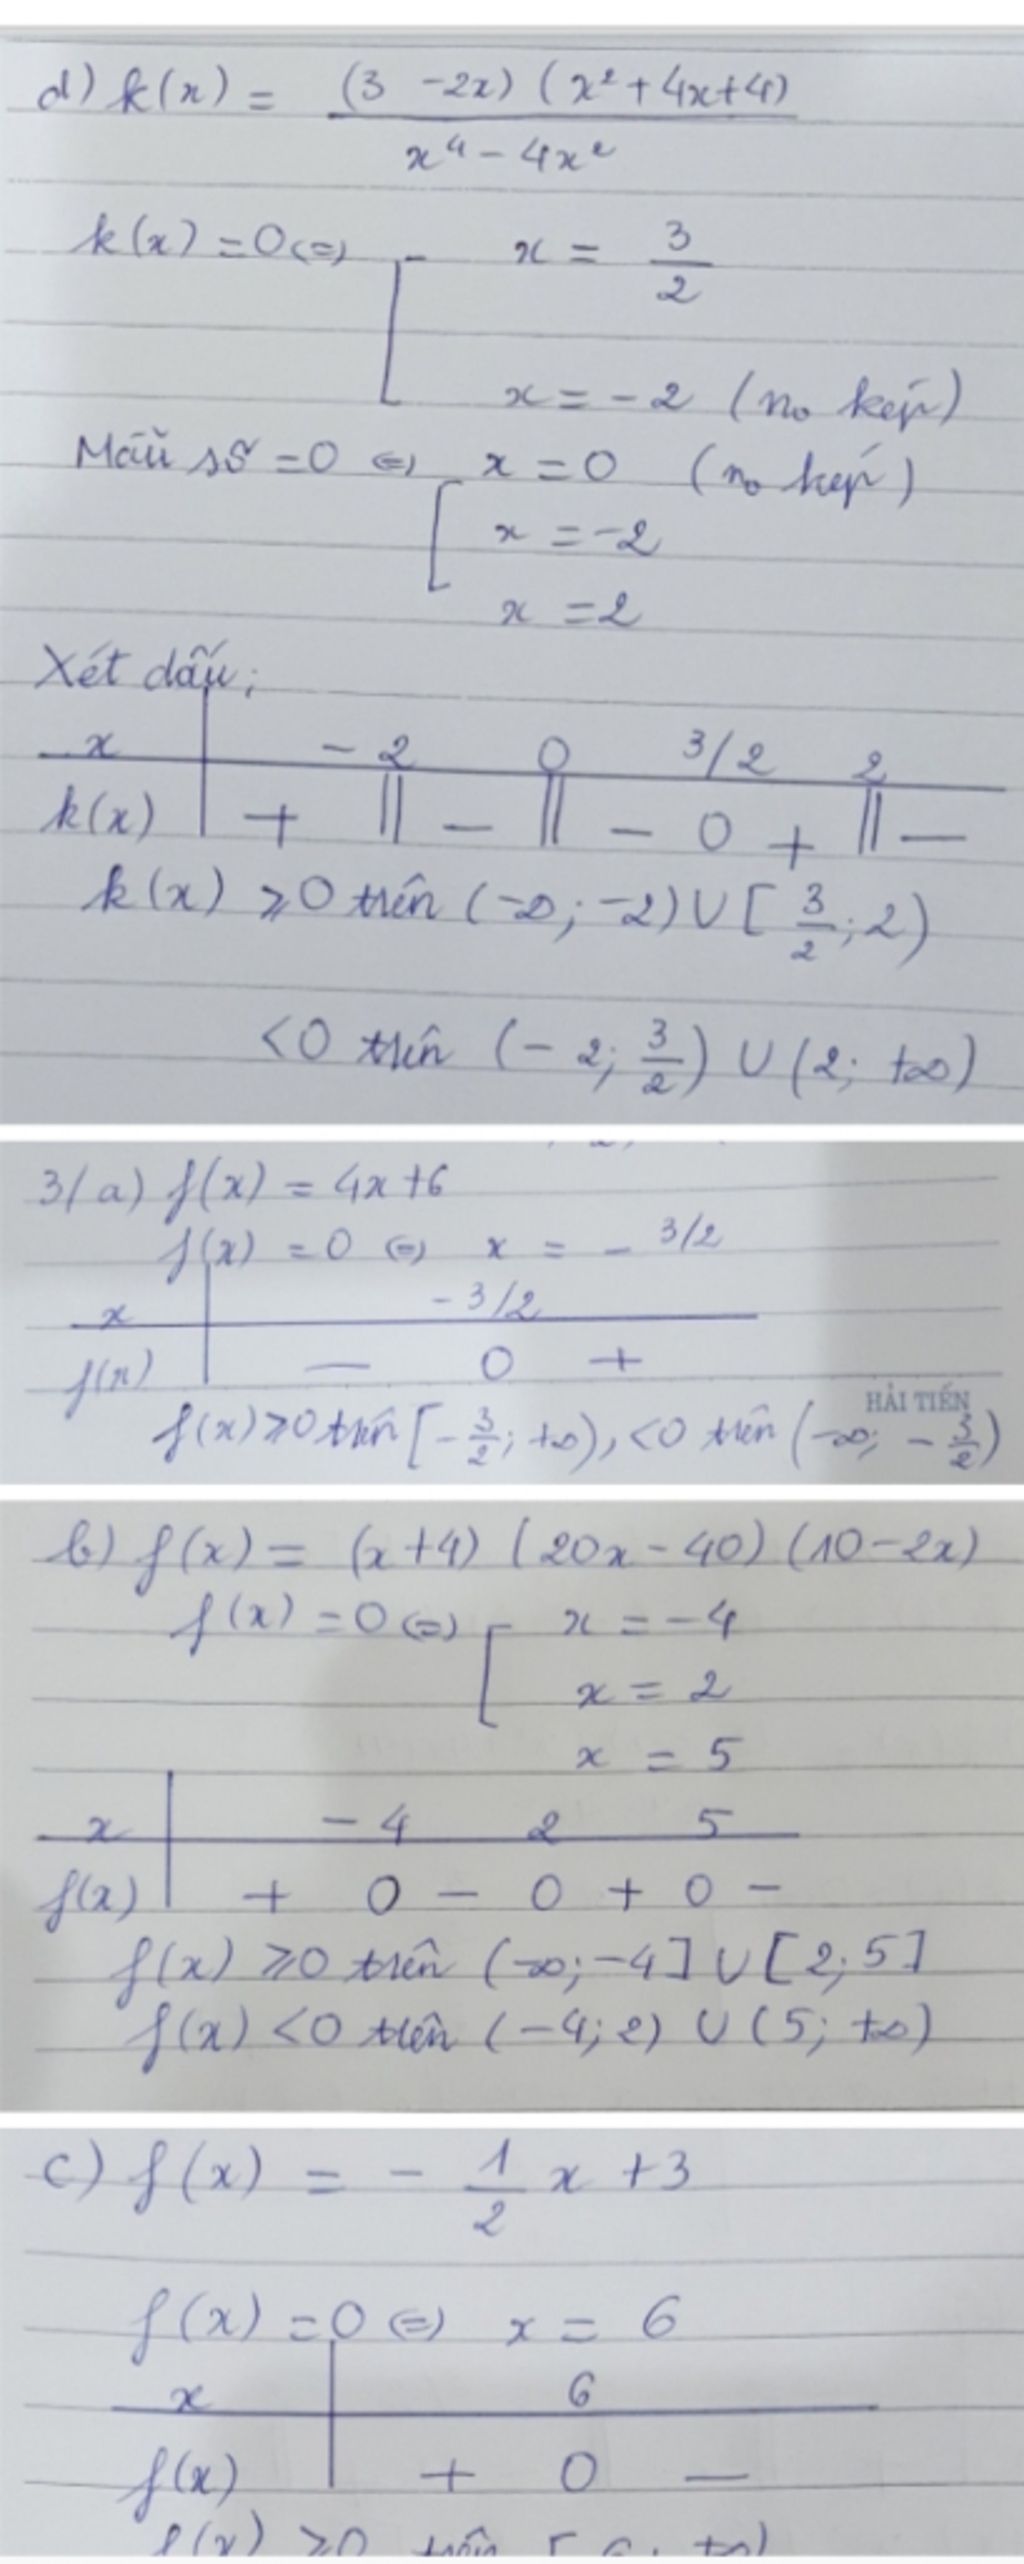 d) k(x) = (3 -2x) (x² + 4x+4) / x⁴ - 4x²
k(x) = 0 <=> [ x = 3/2
x = -2 (no kép)
Mẫu số = 0 <=> [ x = 0 (no kép)
x = -2
x = 2
Xét dấu;
x -2 0 3/2 2
k(x) + || - || - 0 + || -
k(x) ≥ 0 trên (-∞; -2) ∪ [3/2; 2)
< 0 trên (-2; 3/2) ∪ (2; +∞)
3/ a) f(x) = 4x+6
f(x) = 0 <=> x = - 3/2
x -3/2
f(x) - 0 +
HẢI TIẾN
f(x) ≥ 0 trên [-3/2; +∞), < 0 trên (-∞; -3/2)
b) f(x) = (x+4) (20x - 40) (10 - 2x)
f(x) = 0 <=> [ x = -4
x = 2
x = 5
x -4 2 5
f(x) + 0 - 0 + 0 -
f(x) ≥ 0 trên (-∞; -4] ∪ [2; 5]
f(x) < 0 trên (-4; 2) ∪ (5; +∞)
c) f(x) = - 1/2 x + 3
f(x) = 0 <=> x = 6
x 6
f(x) + 0 -
f(x) ≥ 0 trên [6; +∞)